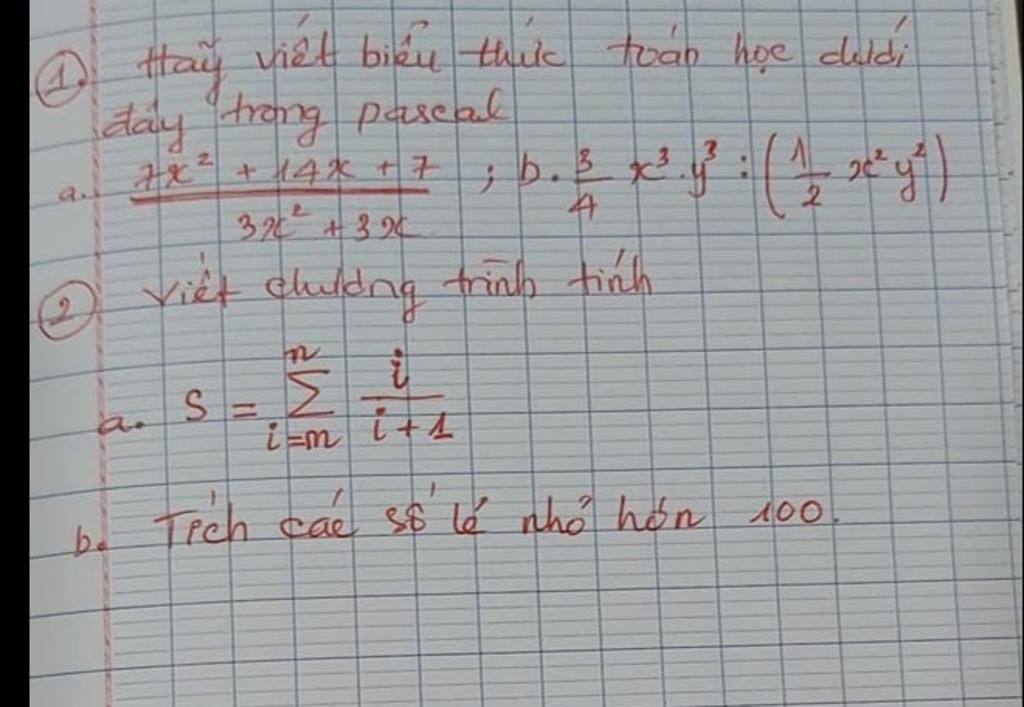 ① Hãy viết biểu thức toán học dưới
đây trong pascal
a. (7x² + 14x + 7)/(3x² + 3x) ; b. 3/4 x³.y³ : (1/2 x²y²)
② Viết chương trình tính
a. S = ∑_{i=m}^{n} i/(i+1)
b. Tích các số lẻ nhỏ hơn 100.